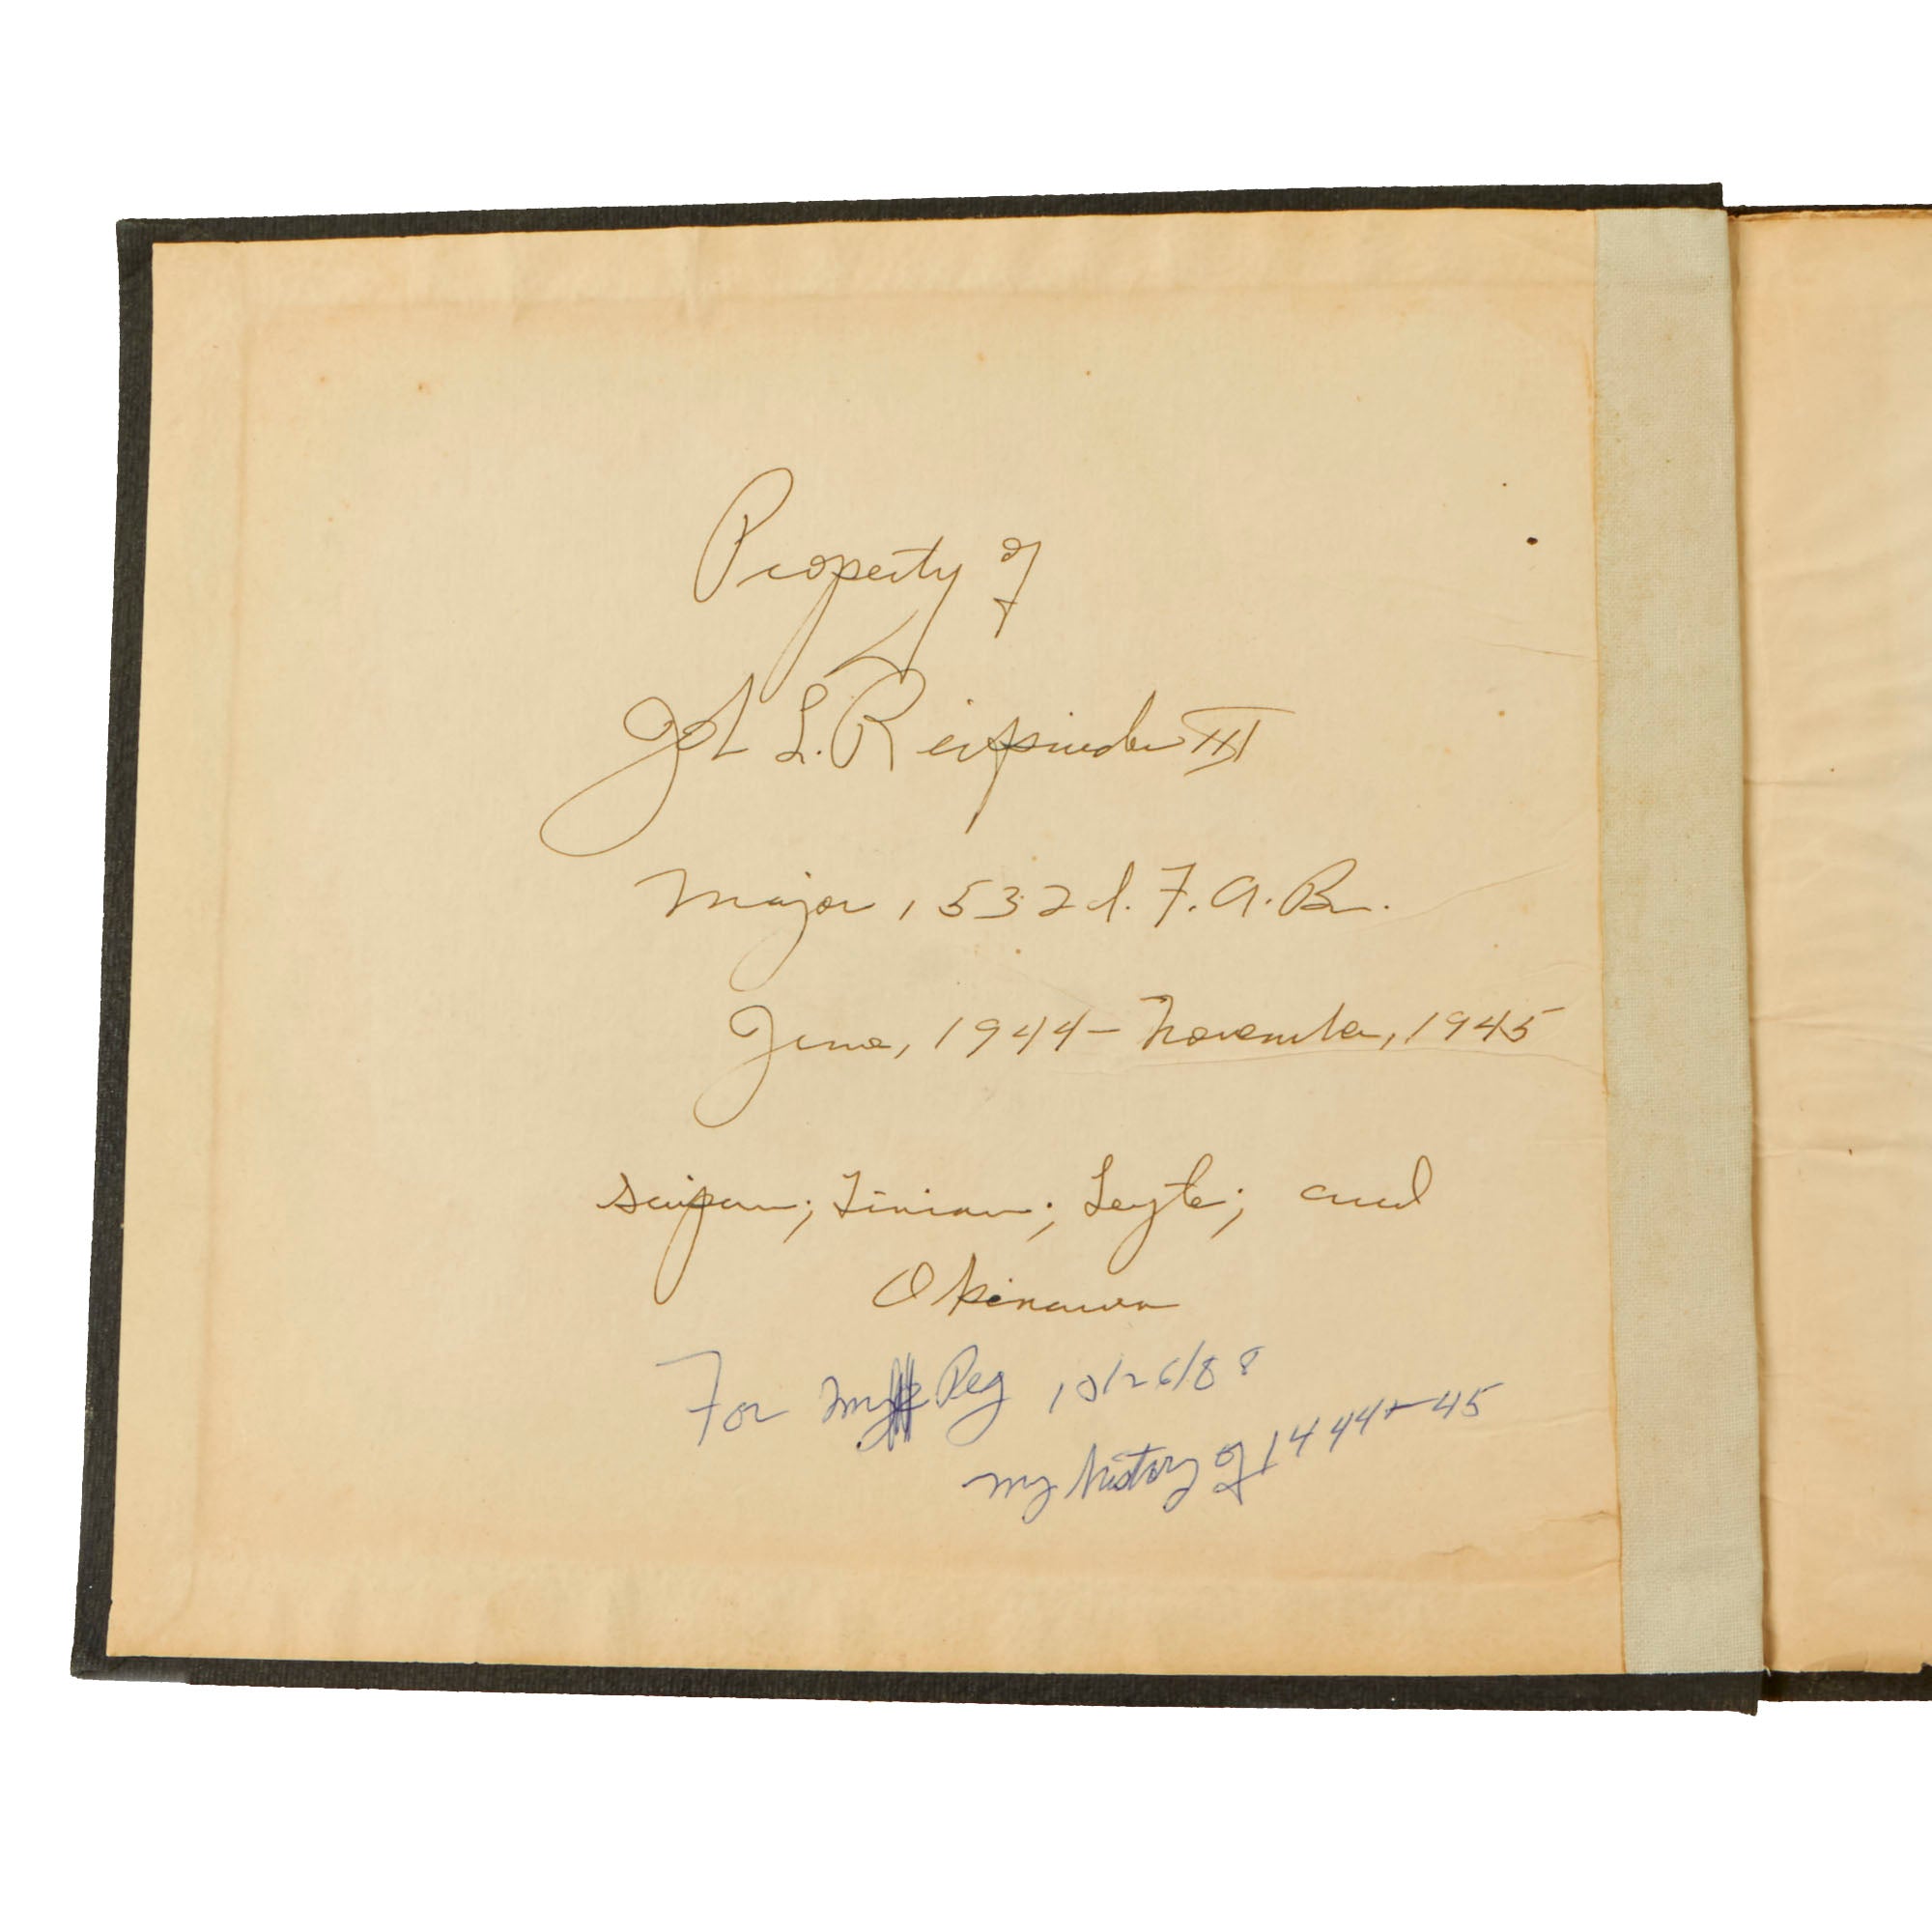 Property of
L. III
Major, 532d. F. A. Bn.
June, 1944 - November, 1945
Saipan; Tinian; Leyte; and
Okinawa
For my Peg 10/26/88
my history of 1944-45